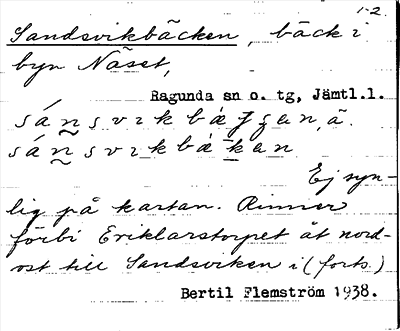 1-2.
Sandsvikbäcken, bäck i
byn Näset,
Ragunda sn o. tg, Jämtl.l.
Ej syn-
lig på kartan. Rinner
förbi Eriklarstorpet åt nord-
ost till Sandviken i (forts.)
Bertil Flemström 1938.